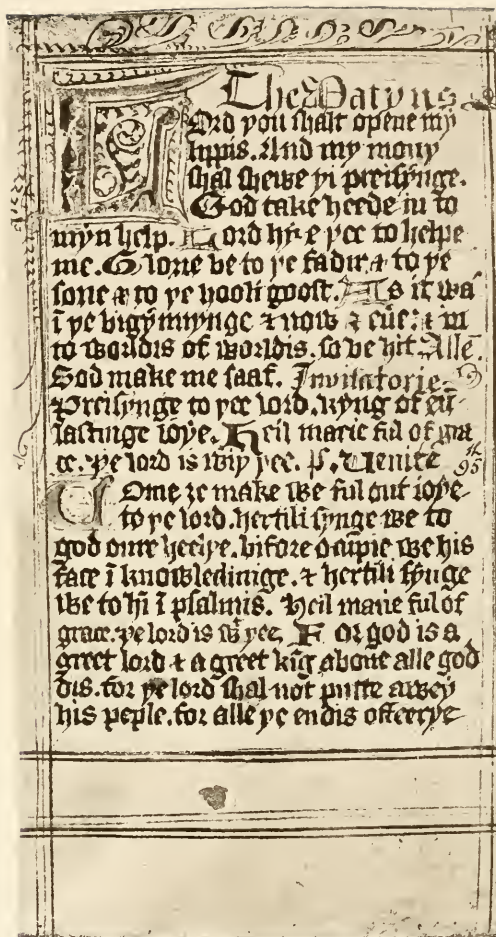 The Matyns
Lord þou shalt opene my
lippis. And my mouþ
shal shewe þi preisynge.
God take heede in to
myn help. Lord hiȝe þee to helpe
me. Glorie be to þe fadir & to þe
sone & to þe hooli goost. As it was
ī þe bigynnynge & now & eū: & in
to worldis of worldis. so be hit Allē.
God make me saaf. Invitatorie.
Preisynge to þee lord. kyng of eū-
lastinge ioye. Heil marie ful of gra
ce. þe lord is wiþ þee. Ps. Uenite
95
Come ȝe make we ful out ioye
to þe lord. hertili synge we to
god oure heelþe. bifore ocupie we his
face ī knowlechinge. & hertili synge
we to hī ī psalmis. Heil marie ful of
grace. þe lord is wt þee. For god is a
greet lord & a greet kīg aboue alle god
dis. for þe lord shal not putte awey
his peple. for alle þe endis of eerþe